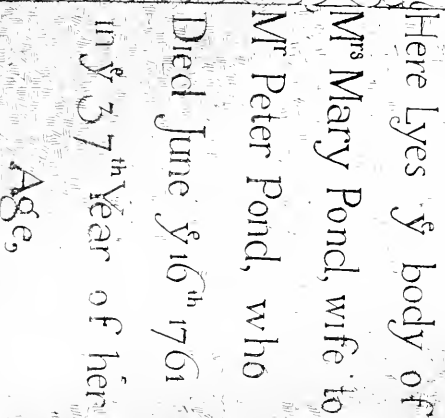 Here Lyes yᵉ body of
Mʳˢ Mary Pond, wife to
Mʳ Peter Pond, who
Died June yᵉ 16ᵗʰ 1761
in yᵉ 37ᵗʰ Year of her
Age,